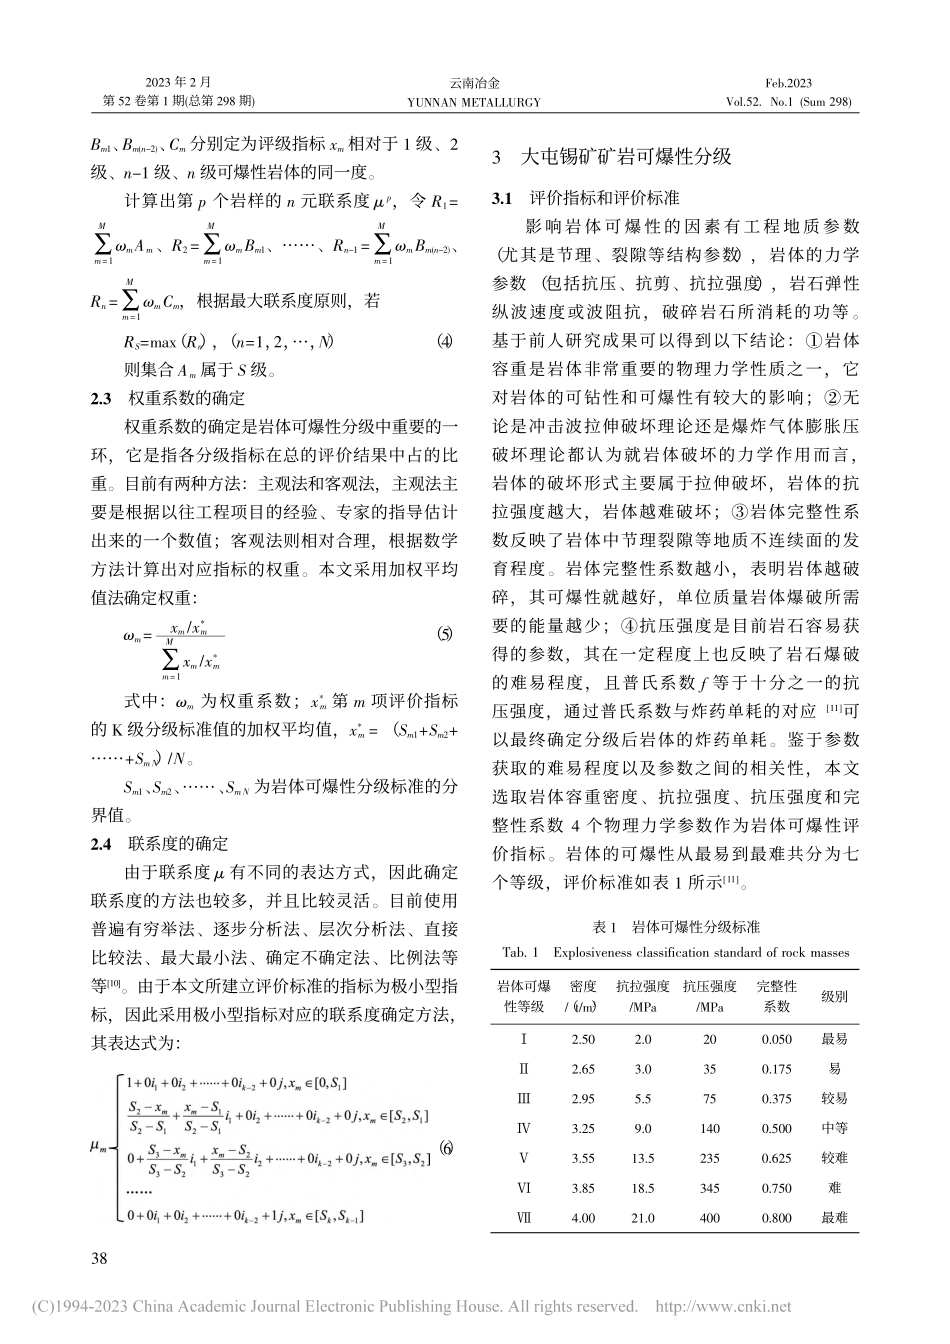 2023 年 2 月
第 52 卷第 1 期(总第 298 期)
云南冶金
YUNNAN METALLURGY
Feb.2023
Vol.52. No.1 (Sum 298)
Bm1、Bm(n-2)、Cm 分别定为评级指标 xm 相对于 1 级、2
级、n-1 级、n 级可爆性岩体的同一度。
计算出第 p 个岩样的 n 元联系度 μ^p，令 R1=
∑_{m=1}^{M} ωmAm、R2=∑_{m=1}^{M} ωmBm1、……、Rn-1=∑_{m=1}^{M} ωmBm(n-2)、
Rn=∑_{m=1}^{M} ωmCm，根据最大联系度原则，若
RS=max (Rn)，(n=1, 2, …, N) (4)
则集合 Am 属于 S 级。
2.3 权重系数的确定
权重系数的确定是岩体可爆性分级中重要的一
环，它是指各分级指标在总的评价结果中占的比
重。目前有两种方法：主观法和客观法，主观法主
要是根据以往工程项目的经验、专家的指导估计
出来的一个数值；客观法则相对合理，根据数学
方法计算出对应指标的权重。本文采用加权平均
值法确定权重：
ωm= (xm/x*m) / (∑_{m=1}^{M} xm/x*m) (5)
式中：ωm 为权重系数；x*m 第 m 项评价指标
的 K 级分级标准值的加权平均值，x*m = (Sm1+Sm2+
……+SmN) /N。
Sm1、Sm2、……、SmN 为岩体可爆性分级标准的分
界值。
2.4 联系度的确定
由于联系度 μ 有不同的表达方式，因此确定
联系度的方法也较多，并且比较灵活。目前使用
普遍有穷举法、逐步分析法、层次分析法、直接
比较法、最大最小法、确定不确定法、比例法等
等[10]。由于本文所建立评价标准的指标为极小型指
标，因此采用极小型指标对应的联系度确定方法，
其表达式为：
μm= { 1+0i1+0i2+……+0ik-2+0j, xm∈[0,S1]
(S2-xm)/(S2-S1)+(xm-S1)/(S2-S1) i1+0i2+……+0ik-2+0j, xm∈[S2,S1]
0+(S3-xm)/(S3-S2) i1+(xm-S2)/(S3-S2) i2+……+0ik-2+0j, xm∈[S3,S2] (6)
……
0+0i1+0i2+……+0ik-2+1j, xm∈[Sk,Sk-1]
3 大屯锡矿矿岩可爆性分级
3.1 评价指标和评价标准
影响岩体可爆性的因素有工程地质参数
(尤其是节理、裂隙等结构参数)，岩体的力学
参数 (包括抗压、抗剪、抗拉强度)，岩石弹性
纵波速度或波阻抗，破碎岩石所消耗的功等。
基于前人研究成果可以得到以下结论：①岩体
容重是岩体非常重要的物理力学性质之一，它
对岩体的可钻性和可爆性有较大的影响；②无
论是冲击波拉伸破坏理论还是爆炸气体膨胀压
破坏理论都认为就岩体破坏的力学作用而言，
岩体的破坏形式主要属于拉伸破坏，岩体的抗
拉强度越大，岩体越难破坏；③岩体完整性系
数反映了岩体中节理裂隙等地质不连续面的发
育程度。岩体完整性系数越小，表明岩体越破
碎，其可爆性就越好，单位质量岩体爆破所需
要的能量越少；④抗压强度是目前岩石容易获
得的参数，其在一定程度上也反映了岩石爆破
的难易程度，且普氏系数 f 等于十分之一的抗
压强度，通过普氏系数与炸药单耗的对应 [11]可
以最终确定分级后岩体的炸药单耗。鉴于参数
获取的难易程度以及参数之间的相关性，本文
选取岩体容重密度、抗拉强度、抗压强度和完
整性系数 4 个物理力学参数作为岩体可爆性评
价指标。岩体的可爆性从最易到最难共分为七
个等级，评价标准如表 1 所示[11]。
表 1 岩体可爆性分级标准
Tab. 1 Explosiveness classification standard of rock masses
岩体可爆性等级 密度/(t/m) 抗拉强度/MPa 抗压强度/MPa 完整性系数 级别
Ⅰ 2.50 2.0 20 0.050 最易
Ⅱ 2.65 3.0 35 0.175 易
Ⅲ 2.95 5.5 75 0.375 较易
Ⅳ 3.25 9.0 140 0.500 中等
Ⅴ 3.55 13.5 235 0.625 较难
Ⅵ 3.85 18.5 345 0.750 难
Ⅶ 4.00 21.0 400 0.800 最难
38
(C)1994-2023 China Academic Journal Electronic Publishing House. All rights reserved. http://www.cnki.net